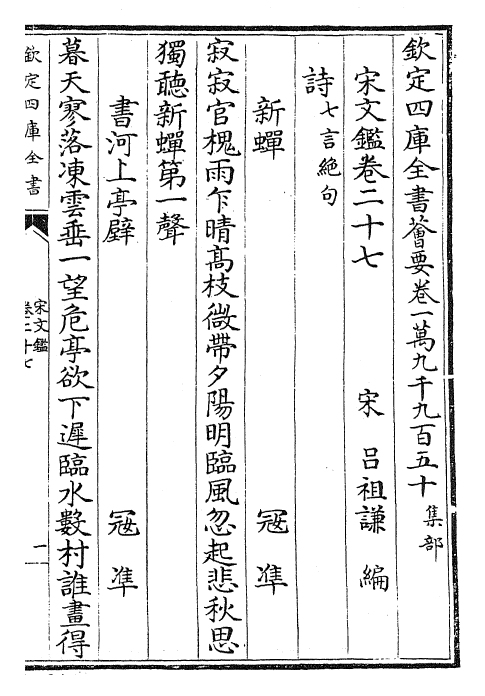 欽定四庫全書薈要卷一萬九千九百五十 集部
宋文鑑卷二十七
宋 呂祖謙 編
詩七言絶句
新蟬 冦準
寂寂官槐雨乍晴髙枝微帶夕陽明臨風忽起悲秋思
獨聽新蟬第一聲
書河上亭壁 冦準
暮天寥落凍雲垂一望危亭欲下遲臨水數村誰畫得
欽定四庫全書
宋文鑑
卷二十七
一